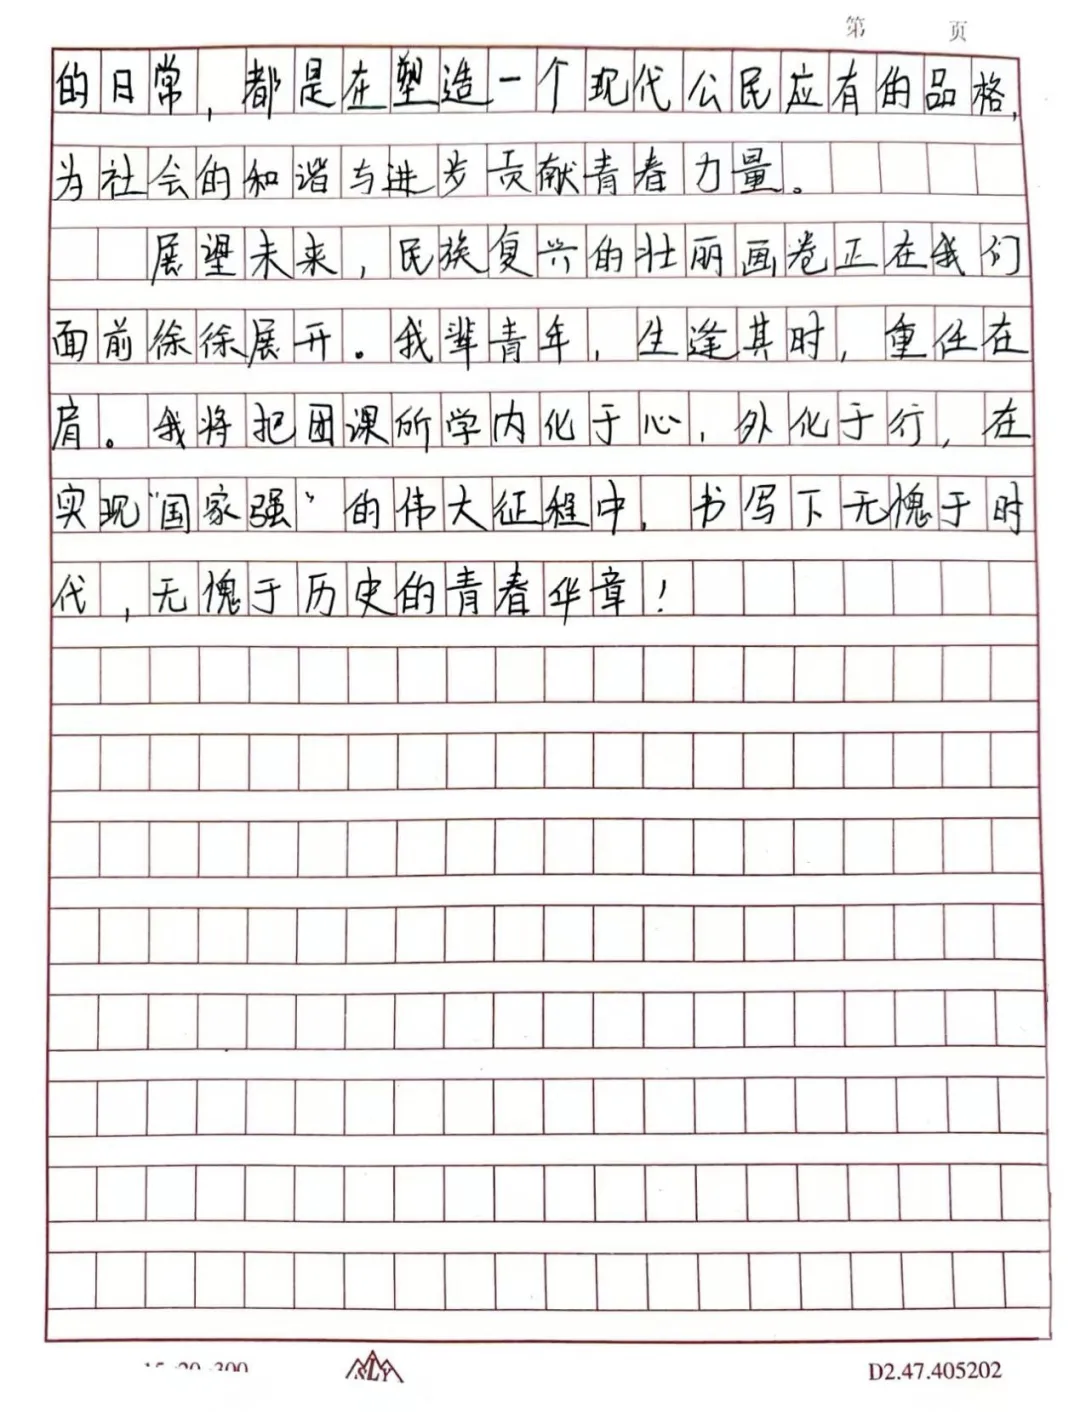 第 页
的日常，都是在塑造一个现代公民应有的品格，
为社会的和谐与进步贡献青春力量。
展望未来，民族复兴的壮丽画卷正在我们
面前徐徐展开。我辈青年，生逢其时，重任在
肩。我将把团课所学内化于心，外化于行，在
实现“国家强”的伟大征程中，书写下无愧于时
代，无愧于历史的青春华章！
D2.47.405202